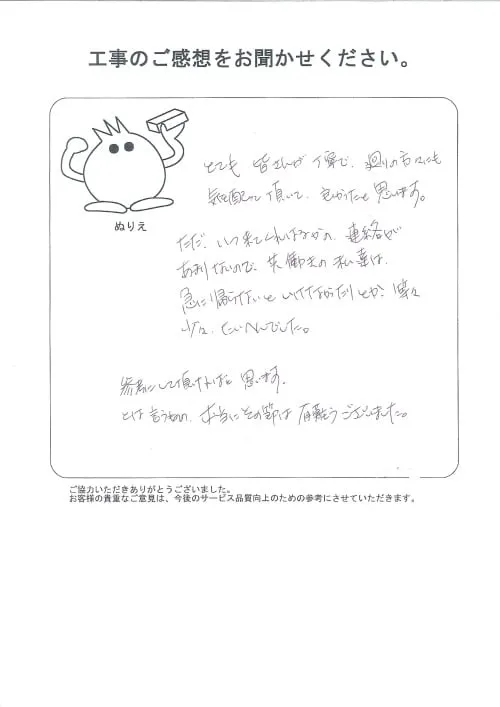 工事のご感想をお聞かせください。
ぬりえ
とても 皆さんが丁寧で、廻りの方々にも
気を配って頂いて、良かったと思います。
ただ、いつ来てくれはるかの、連絡が
あまりないので、共働きの私達は、
急に帰らないといけなかったりとか、
少々、たいへんでした。
参考にして頂ければと思います。
とは言うものの、本当にその節は有難うございました。
ご協力いただきありがとうございました。
お客様の貴重なご意見は、今後のサービス品質向上のための参考にさせていただきます。